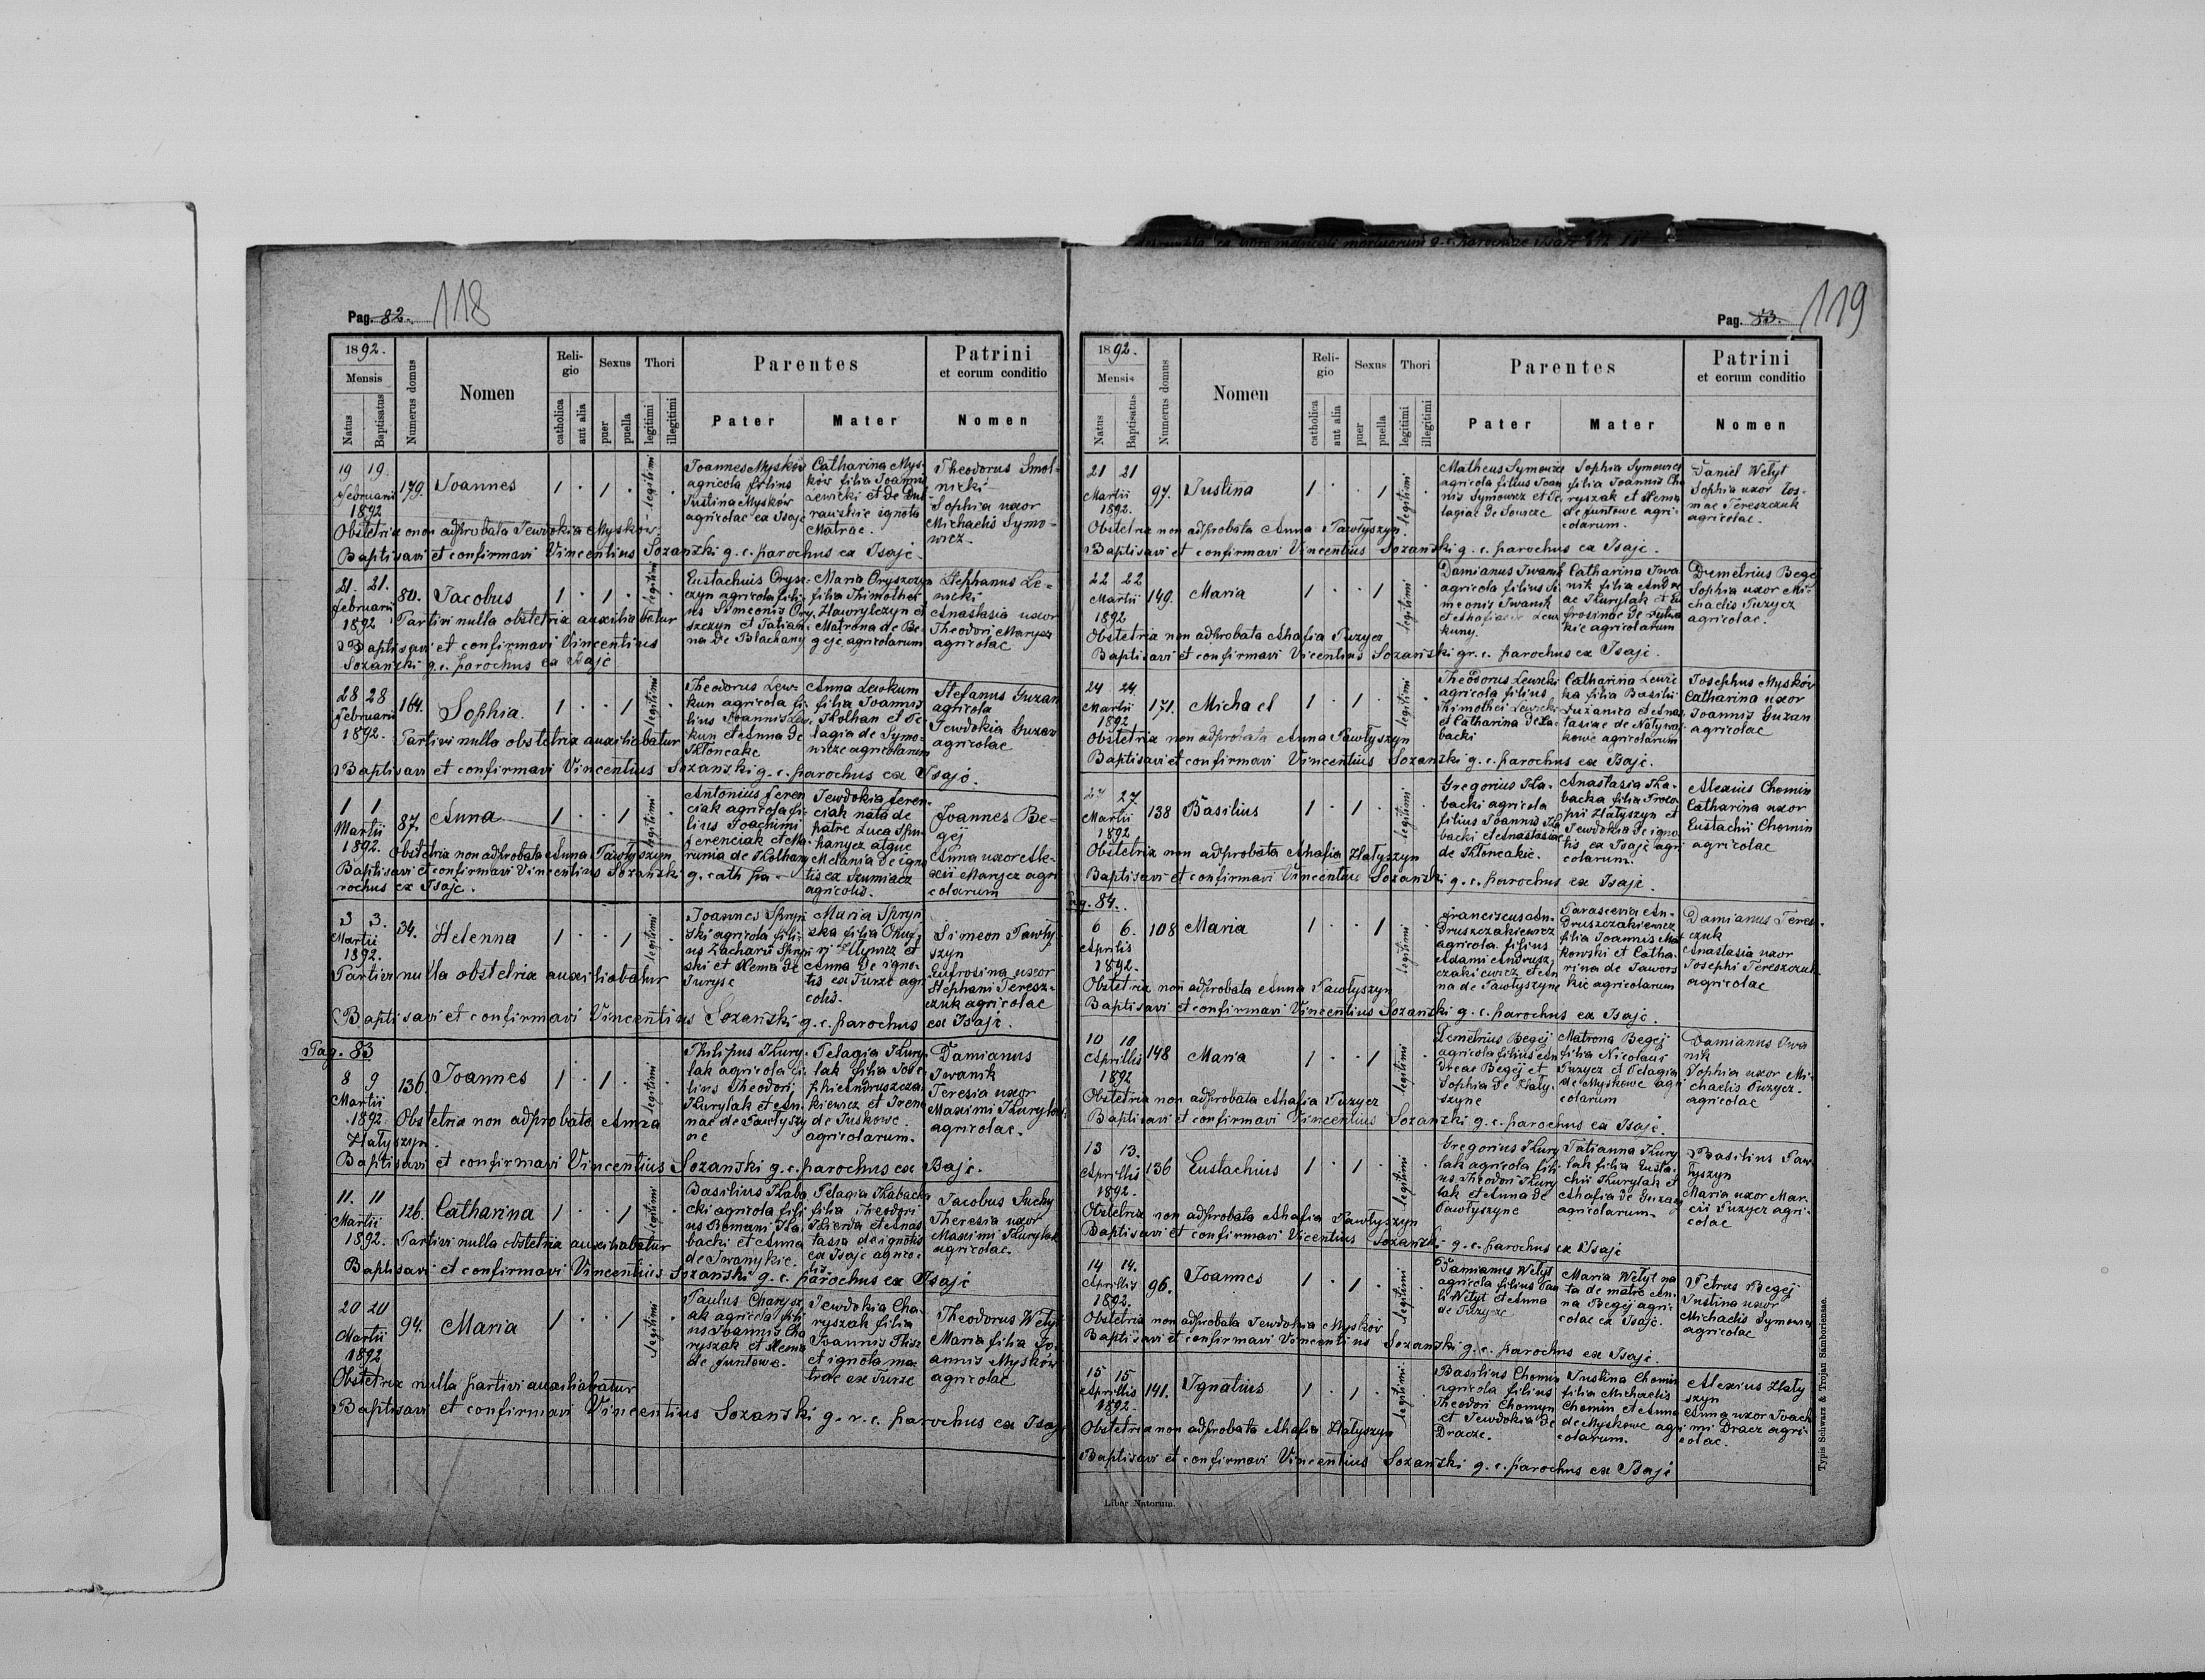 Pag. 82. 118
1892.
Mensis
Natus
Baptisatus
Numerus domus
Nomen
Religio
catholica
aut alia
Sexus
puer
puella
Thori
legitimi
illegitimi
Parentes
Pater
Mater
Patrini
et eorum conditio
Nomen
19 19.
februarii
1892
179. Joannes 1 · 1 · legitimi ·
Joannes Mysków
agricola filius
Justina Myskow
agricolae ex Isaje
Catharina Mys-
ków filia Joannis
Lewicki et de
ignota
Matrae.
Theodorus Smol-
nicki
Sophia uxor
Michaelis Symo-
wicz
Obstetrix non adprobata Jewdokia Myskow
Baptisavi et confirmavi Vincentius Sozański g. c. parochus ex Isaje
21. 21.
februarii
1892
80. Jacobus 1 · 1 · legitimi ·
Eustachuis Orysz-
czyn agricola fili-
us Simeonis Ory-
szczyn et Tatian-
na de Blachany
Maria Oryszczyn
filia Thimothei
Hawrylczyn et
Matrona de Be-
geje agricolarum
Stephanus Le-
nicki
Anastasia uxor
Theodori Marycz
agricolae
Partivi nulla obstetrix auxiliabatur
Baptisavi et confirmavi Vincentius
Sozański g. c. parochus ex Isaje
28 28
februarii
1892.
164. Sophia. 1 · · 1 legitimi ·
Theodorus Lew-
kun agricola fi-
lius Joannis Lew-
kun et Anna de
Kłoncake
Anna Lewkum
filia Joannis
Kolhan et Pe-
lagia de Symo-
wicze agricolarum
Stefanus Guzan
agricola
Jewdokia Guzan
agricolae
Partivi nulla obstetrix auxiliabatur
Baptisavi et confirmavi Vincentius Sozański g. c. parochus ex Isaje.
1 1
Martii
1892.
87. Anna 1 · · 1 legitimi ·
Antonius feren
ciak agricola fi-
lius Joachimi
ferenciak et Ma-
runia de Kolhany
Jewdokia feren-
ciak nata de
patre Luca
atque
Melania de igno
tis ex Szumiacz
agricolis.
Joannes Be-
gej
Anna uxor Ale-
xii Marycz agri
colarum
Obstetrix non adprobata Anna Pawłyszyn
Baptisavi et confirmavi Vincentius Sozański g. cath pa-
rochus ex Isaje.
3 3.
Martii
1892.
34. Helenna 1 · · 1 legitimi ·
Joannes Spryn
ski agricola fili-
us Zacharii Spryn
ski et Xemia de
Turyse
Maria Spryn
ska filia Onuf-
rj Ulywicz et
Anna de igno-
tis ex Turze agri
colis.
Simeon Pawły-
szyn
Eufrosina uxor
Stephani Teresz-
czuk agricolae
Partivi nulla obstetrix auxiliabatur
Baptisavi et confirmavi Vincentius Sozański g. c. parochus ex Isaje.
Pag. 83
8 9
Martii
1892
136. Joannes 1 · 1 · legitimi ·
Philipus Kury-
lak agricola fi-
lius Theodori
Kurylak et An-
nae de Pawłyszy
ne
Pelagia Kury-
lak filia Jose-
phi Andruszcza-
kiewicz et Irena
de Juskowe
agricolarum.
Damianus
Iwanik
Teresia uxor
Maximi Kurylak
agricolae.
Obstetrix non adprobata Anna
Hałyszyn.
Baptisavi et confirmavi Vincentius Sozański g. c. parochus ex Isaje.
11. 11
Martii
1892.
126. Catharina 1 · · 1 legitimi ·
Basilius Kaba
cki agricola fili
us Romani Ka-
backi et Anna
de Iwanykie.
Pelagia Kabacka
filia Theodori
Kierda et Anas
tasia de ignotis
ex Isaje agrico-
lis.
Jacobus Suchy
Theresia uxor
Maximi Kurylak
agricolae.
Partivi nulla obstetrix auxiliabatur
Baptisavi et confirmavi Vincentius Sozański g. c. parochus ex Isaje
20 20
Martii
1892
94. Maria 1 · · 1 legitimi ·
Paulus Charysz
ak agricola fili
us Joannis Cha
ryszak et Xemia
de funtowe.
Jewdokia Cha-
ryszak filia
Joannis
et ignota ma-
trae ex Turze
Theodorus Wełyt
Maria filia Jo-
annis Mysków
agricolae
Obstetrix nulla partivi auxiliabatur
Baptisavi et confirmavi Vincentius Sozański g. r. c. parochus ex Isaje
Pag. 83. 119
1892.
Mensis
Natus
Baptisatus
Numerus domus
Nomen
Religio
catholica
aut alia
Sexus
puer
puella
Thori
legitimi
illegitimi
Parentes
Pater
Mater
Patrini
et eorum conditio
Nomen
21 21
Martii
1892.
97. Justina 1 · · 1 legitimi ·
Matheus Symowicz
agricola filius Joan
nis Symowicz et Pe
lagiae de Sowicze
Sophia Symowicz
filia Joannis Cha
ryszak et Xemia
de funtowe agri-
colarum.
Daniel Wełyt
Sophia uxor Cos-
mae Tereszczuk
agricolae.
Obstetrix non adprobata Anna Pawłyszyn.
Baptisavi et confirmavi Vincentius Sozański g. c. parochus ex Isaje.
22 22
Martii
1892
149. Maria 1 · · 1 legitimi ·
Damianus Iwanik
agricola filius Si
meonis Iwanik
et Ahafia de Lew
kuny.
Catharina Iwa-
nik filia Andre
ae Kurylak et Eu
frosinae de
agricolarum
Demetrius Begej
Sophia uxor Mi-
chaelis Puzycz
agricolae.
Obstetrix non adprobata Ahafia Puzycz
Baptisavi et confirmavi Vicentius Sozański gr. c. parochus ex Isaje.
24 24.
Martii
1892
171. Michael 1 · 1 · legitimi ·
Theodorus Lewicki
agricola filius
Thimothei Lewicki
et Catharina de Ka-
backi
Catharina Lewic
ka filia Basilii
Łużanica et Anas
tasiae de Natywa-
kowe agricolarum
Josephus Myskóv
Catharina uxor
Joannis Guzan
agricolae
Obstetrix non adprobata Anna Pawłyszyn
Baptisavi et confirmavi Vincentius Sozański g. c. parochus ex Isaje.
27 27.
Martii
1892
138 Basilius 1 · 1 · legitimi ·
Gregorius Ka-
backi agricola
filius Joannis Ka
backi et Anastasiae
de Kłoncakie.
Anastasia Ka-
backa filia Proco-
pii Hałyszyn et
Jewdokia de igno
tis ex Isaje agri
colarum.
Alexius Chomin
Catharina uxor
Eustachii Chomin
agricolae
Obstetrix non adprobata Ahafia Hałyszyn
Baptisavi et confirmavi Vincentius Sozański g. c. parochus ex Isaje.
Pag. 84.
6 6.
Aprilis
1892.
108 Maria 1 · · 1 legitimi ·
franciscus An-
druszczakiewicz
agricola filius
Adami Andrusz-
czakiewicz et An
na de Pawłyszyne
Parascevia An-
druszczakiewicz
filia Joannis Mań
kowski et Catha-
rina de Jawors
kie agricolarum
Damianus Teres-
czuk
Anastasia uxor
Josephi Tereszczuk
agricolae
Obstetrix non adprobata Anna Pawłyszyn
Baptisavi et confirmavi Vincentius Sozański g. c. parochus ex Isaje.
10 10
Aprillis
1892
148 Maria 1 · · 1 legitimi ·
Demetrius Begej
agricola filius An
dreae Begej et
Sophia de Hały-
szyne
Matrona Begej
filia Nicolaus
Puzycz et Pelagia
de Myskowe agri
colarum
Damianus Iwa
nik
Sophia uxor Mi-
chaelis Puzycz.
agricolae
Obstetrix non adprobata Ahafia Puzycz
Baptisavi et confirmavi Vincentius Sozański g. c. parochus ex Isaje.
13 13.
Aprillis
1892.
136 Eustachius 1 · 1 · legitimi ·
Gregorius Kury
lak agricola fili-
us Theodori Kury
lak et Anna de
Pawłyszyne
Tatianna Kury
lak filia Eusta-
chii Kurylak et
Ahafia de Guzany
agricolarum.
Basilius Paw
łyszyn
Maria uxor Mar-
cii Puzycz agri-
colae
Obstetrix non adprobata Ahafia Pawłyszyn
Baptisavi et confirmavi Vicentius Sozański g. c. parochus ex Isaje
14 14.
Aprillis
1892.
96. Joannes 1 · 1 · legitimi ·
Damianus Wełyt
agricola filius Pau
li Wełyt et Anna
de Puzycze
Maria Wełyt na
ta de matre An-
na Begej agri-
colae ex Isaje.
Petrus Begej
Justina uxor
Michaelis Symowicz
agricolae
Obstetrix non adprobata Jewdokia Myskóv
Baptisavi et confirmavi Vincentius Sozański g. c. parochus ex Isaje.
15 15.
Aprillis
1892.
141. Ignatius 1 · 1 · legitimi ·
Basilius Chomin
agricola filius
Theodori Chomyn
et Jewdokia de
Dracze.
Justina Chomin
filia Michaelis
Chomin et Anna
de Myskowe agri
colarum.
Alexius Hały
szyn
Anna uxor Joach
imi Dracz agri-
colae.
Obstetrix non adprobata Ahafia Hałyszyn
Baptisavi et confirmavi Vincentius Sozański g. c. parochus ex Isaje
Liber Natorum.
Typis Schwarz & Trojan Samboriensae.